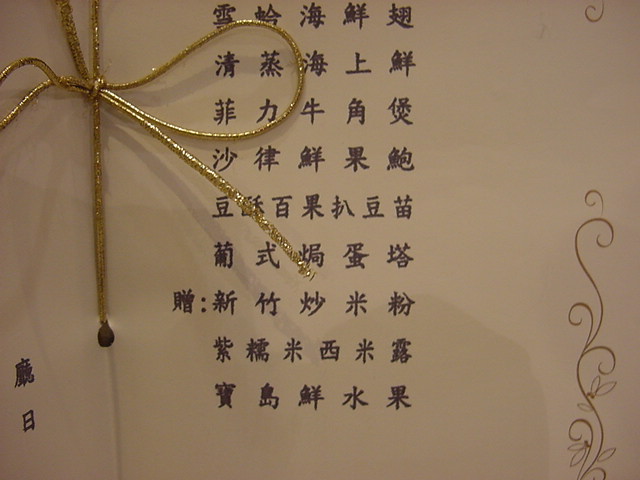 雪蛤海鮮翅
清蒸海上鮮
菲力牛角煲
沙律鮮果鮑
豆酥百果扒豆苗
葡式焗蛋塔
贈:新竹炒米粉
紫糯米西米露
寶島鮮水果
廳
日